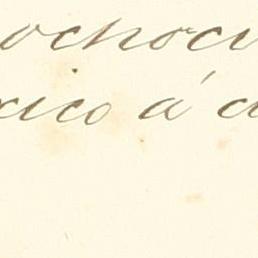 ochoci
xico á d